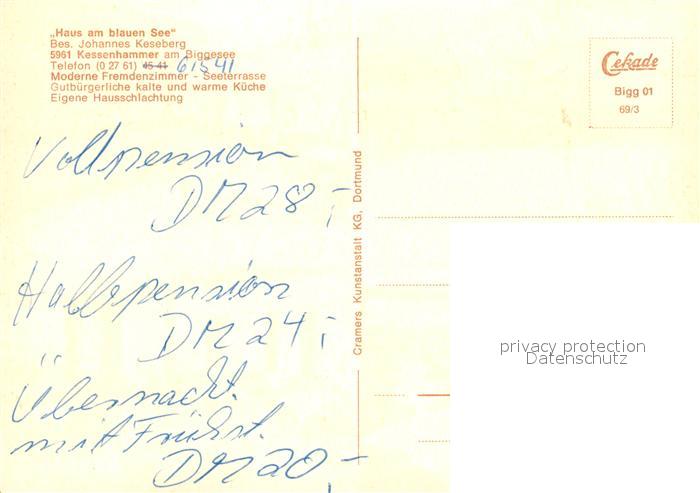 „Haus am blauen See“
Bes. Johannes Keseberg
5961 Kessenhammer am Biggesee
Telefon (0 27 61) 45 41 61541
Moderne Fremdenzimmer - Seeterrasse
Gutbürgerliche kalte und warme Küche
Eigene Hausschlachtung
Vollpension
DM 28,-
Halbpension
DM 24,-
Übernacht.
mit Frühst.
DM 20,-
Cramers Kunstanstalt KG, Dortmund
Cekade
Bigg 01
69/3
privacy protection
Datenschutz